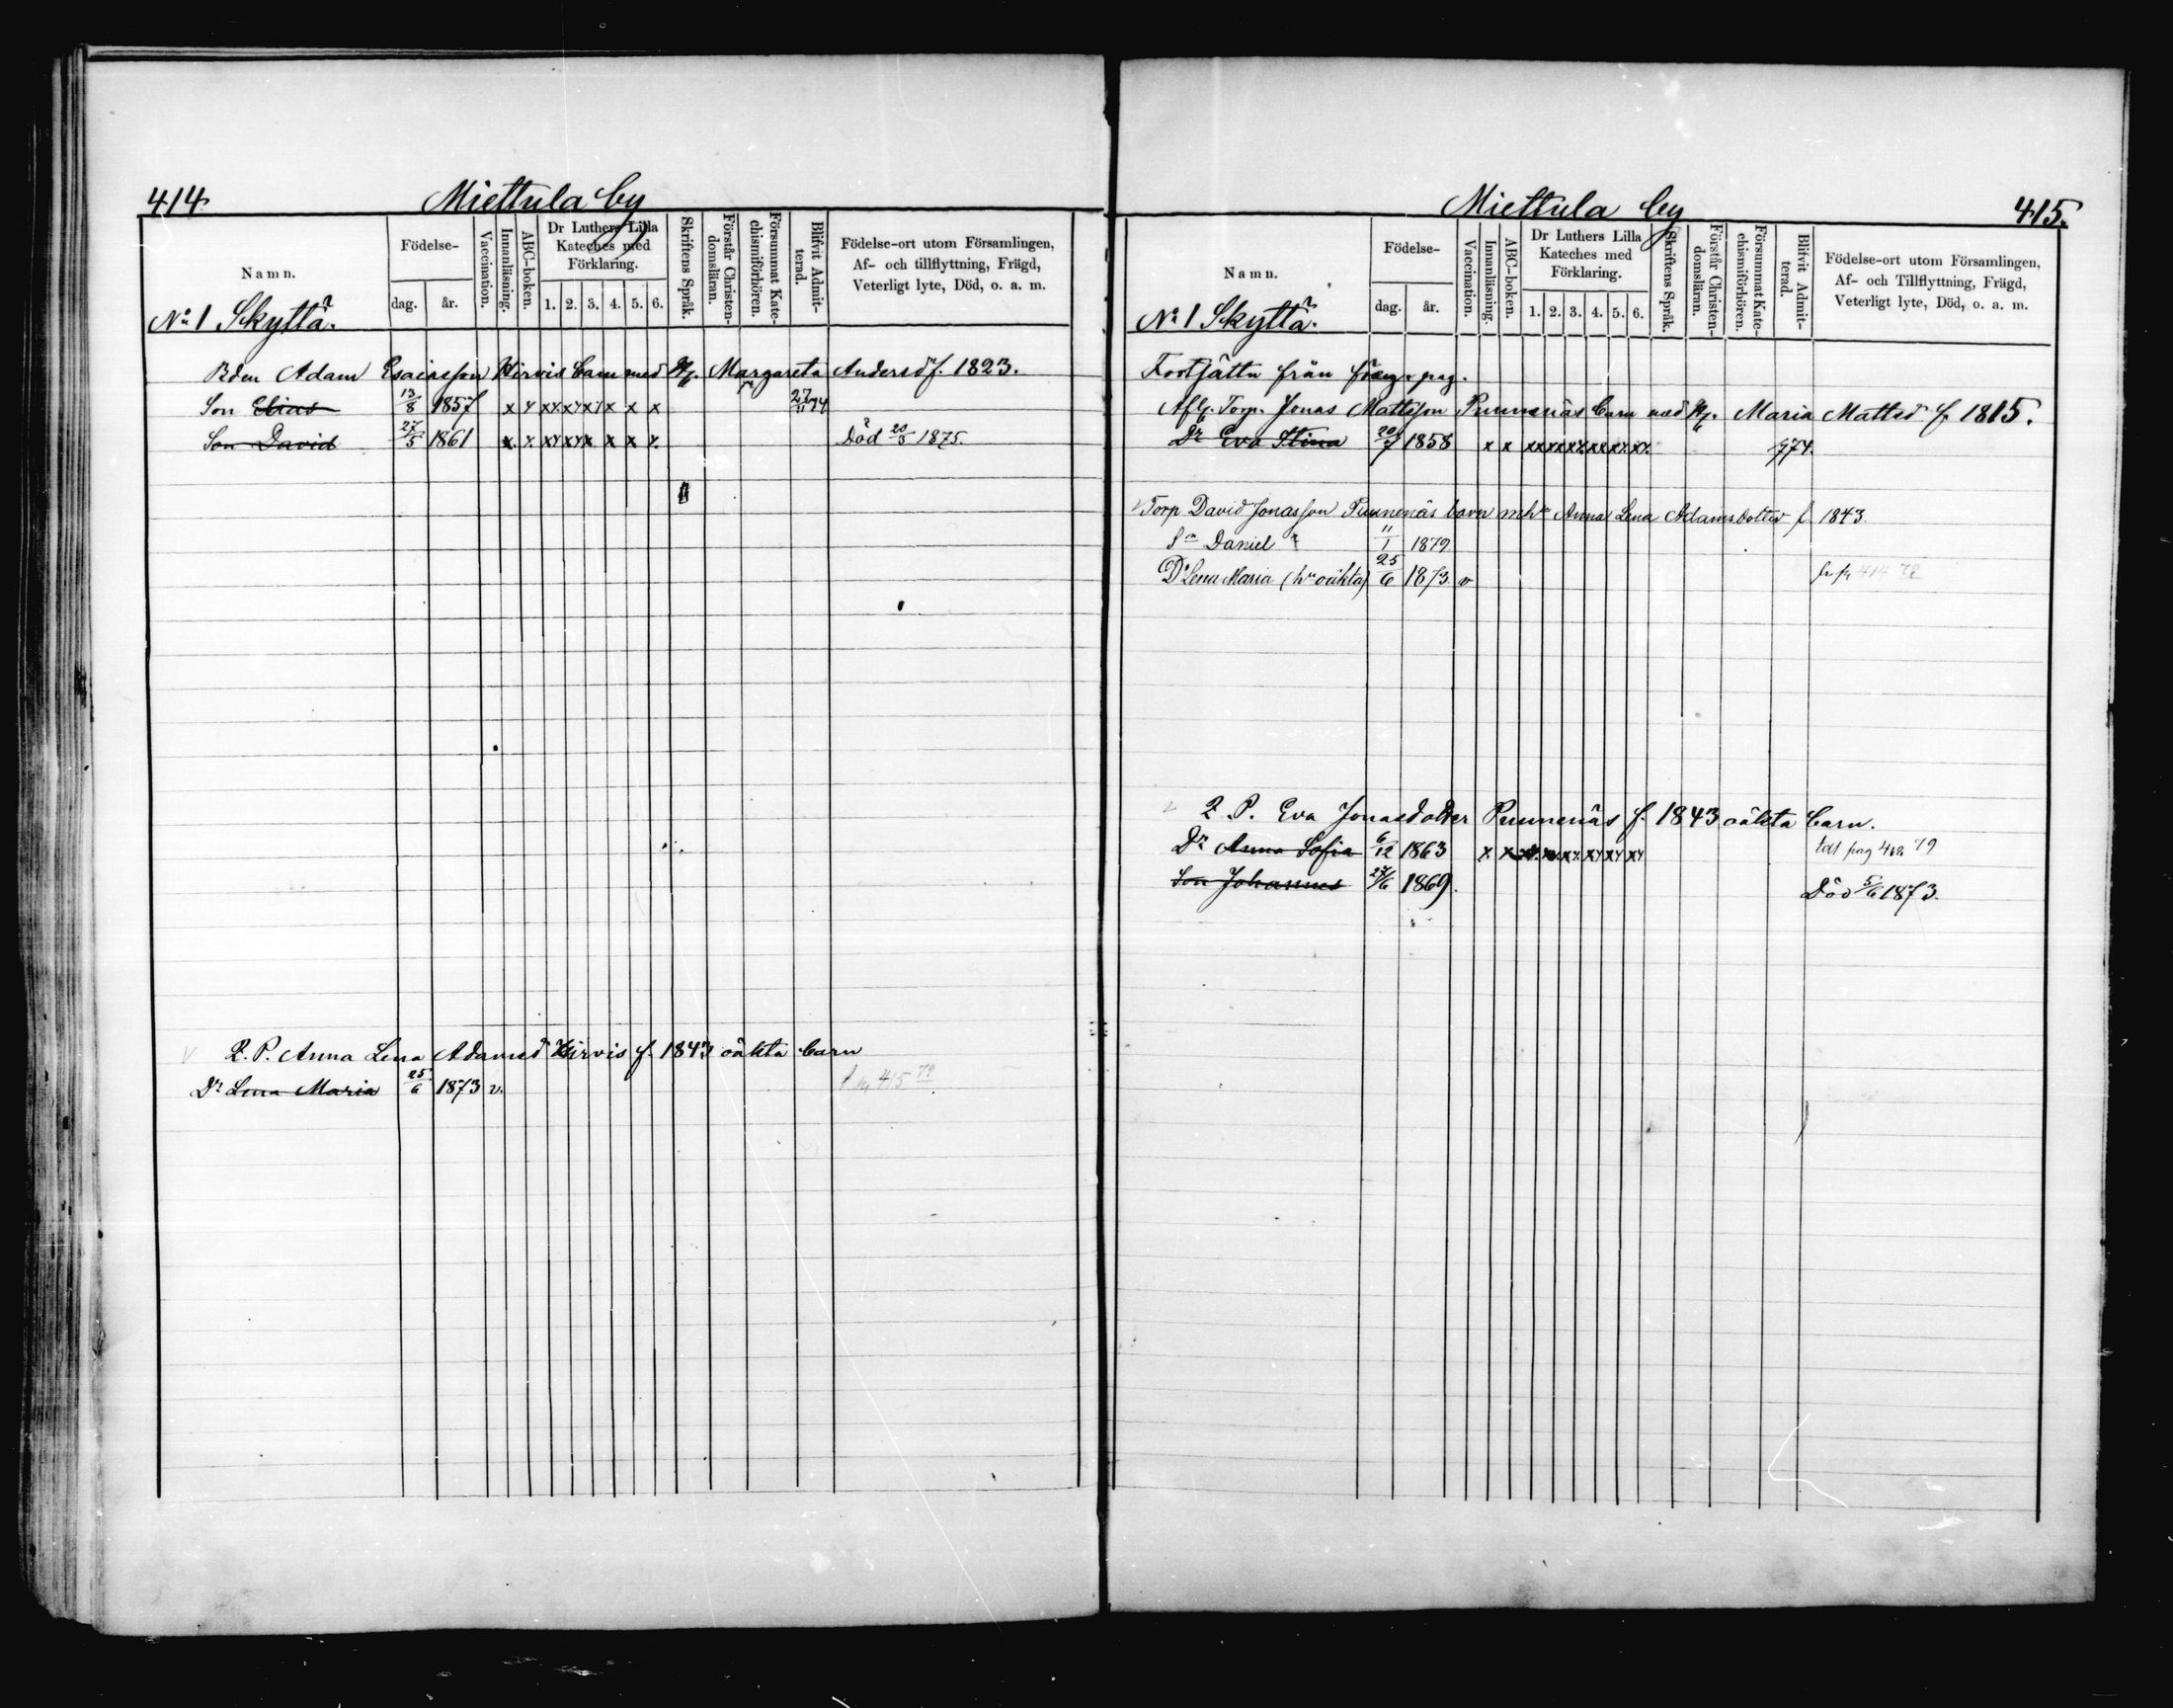 414. Miettula by
Namn. Födelse- Vaccination. Innanläsning. ABC-boken. Dr Luthers Lilla Kateches med Förklaring. Skriftens Språk. Förstår Christen-domsläran. Försummat Kate-chismiförhören. Blifvit Admit-terad. Födelse-ort utom Församlingen, Af- och tillflyttning, Frägd, Veterligt lyte, Död, o. a. m.
dag. år. 1. 2. 3. 4. 5. 6.
No 1 Skyttä.
Bden Adam Esaiasson Hirvis barn med H. Margareta Andersd f. 1823.
Son Elias 13/8 1857 x x xx xx xx x x x 27/11 74
Son David 27/5 1861 x x xx xx x x x x Död 20/5 1875.
Q. P. Anna Lena Adamsd Hirvis f. 1843 oäkta barn
Dr Lena Maria 25/6 1873 v. 415 79
Miettula by 415.
Namn. Födelse- Vaccination. Innanläsning. ABC-boken. Dr Luthers Lilla Kateches med Förklaring. Skriftens Språk. Förstår Christen-domsläran. Försummat Kate-chismiförhören. Blifvit Admit-terad. Födelse-ort utom Församlingen, Af- och Tillflyttning, Frägd, Veterligt lyte, Död, o. a. m.
dag. år. 1. 2. 3. 4. 5. 6.
No 1 Skyttä.
Fortsättn från föreg. pag.
Afl. Torp. Jonas Mattsson Punnenäs barn med H. Maria Mattsd f. 1815.
Dr Eva Stina 20/7 1858 x x xx xx xx xx xx xx 74.
Torp David Jonasson Punnenäs barn m h Anna Lena Adamsdotter f 1843.
Sn Daniel 11/1 1879
Dr Lena Maria (hns oäkta) 25/6 1873. v fr pg 414 79
Q. P. Eva Jonasdotter Punnenäs f. 1843 oäkta barn.
Dr Anna Sofia 6/12 1863 x x xx xx xx xx xx xx pag 79
Son Johannes 27/6 1869. Död 5/6 1873.